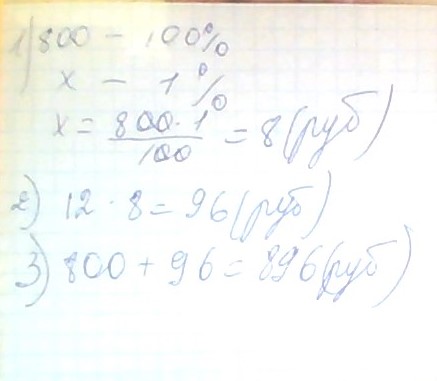 1) 800 - 100%
x - 1%
x = 800 · 1 / 100 = 8 (руб)
2) 12 · 8 = 96 (руб)
3) 800 + 96 = 896 (руб)